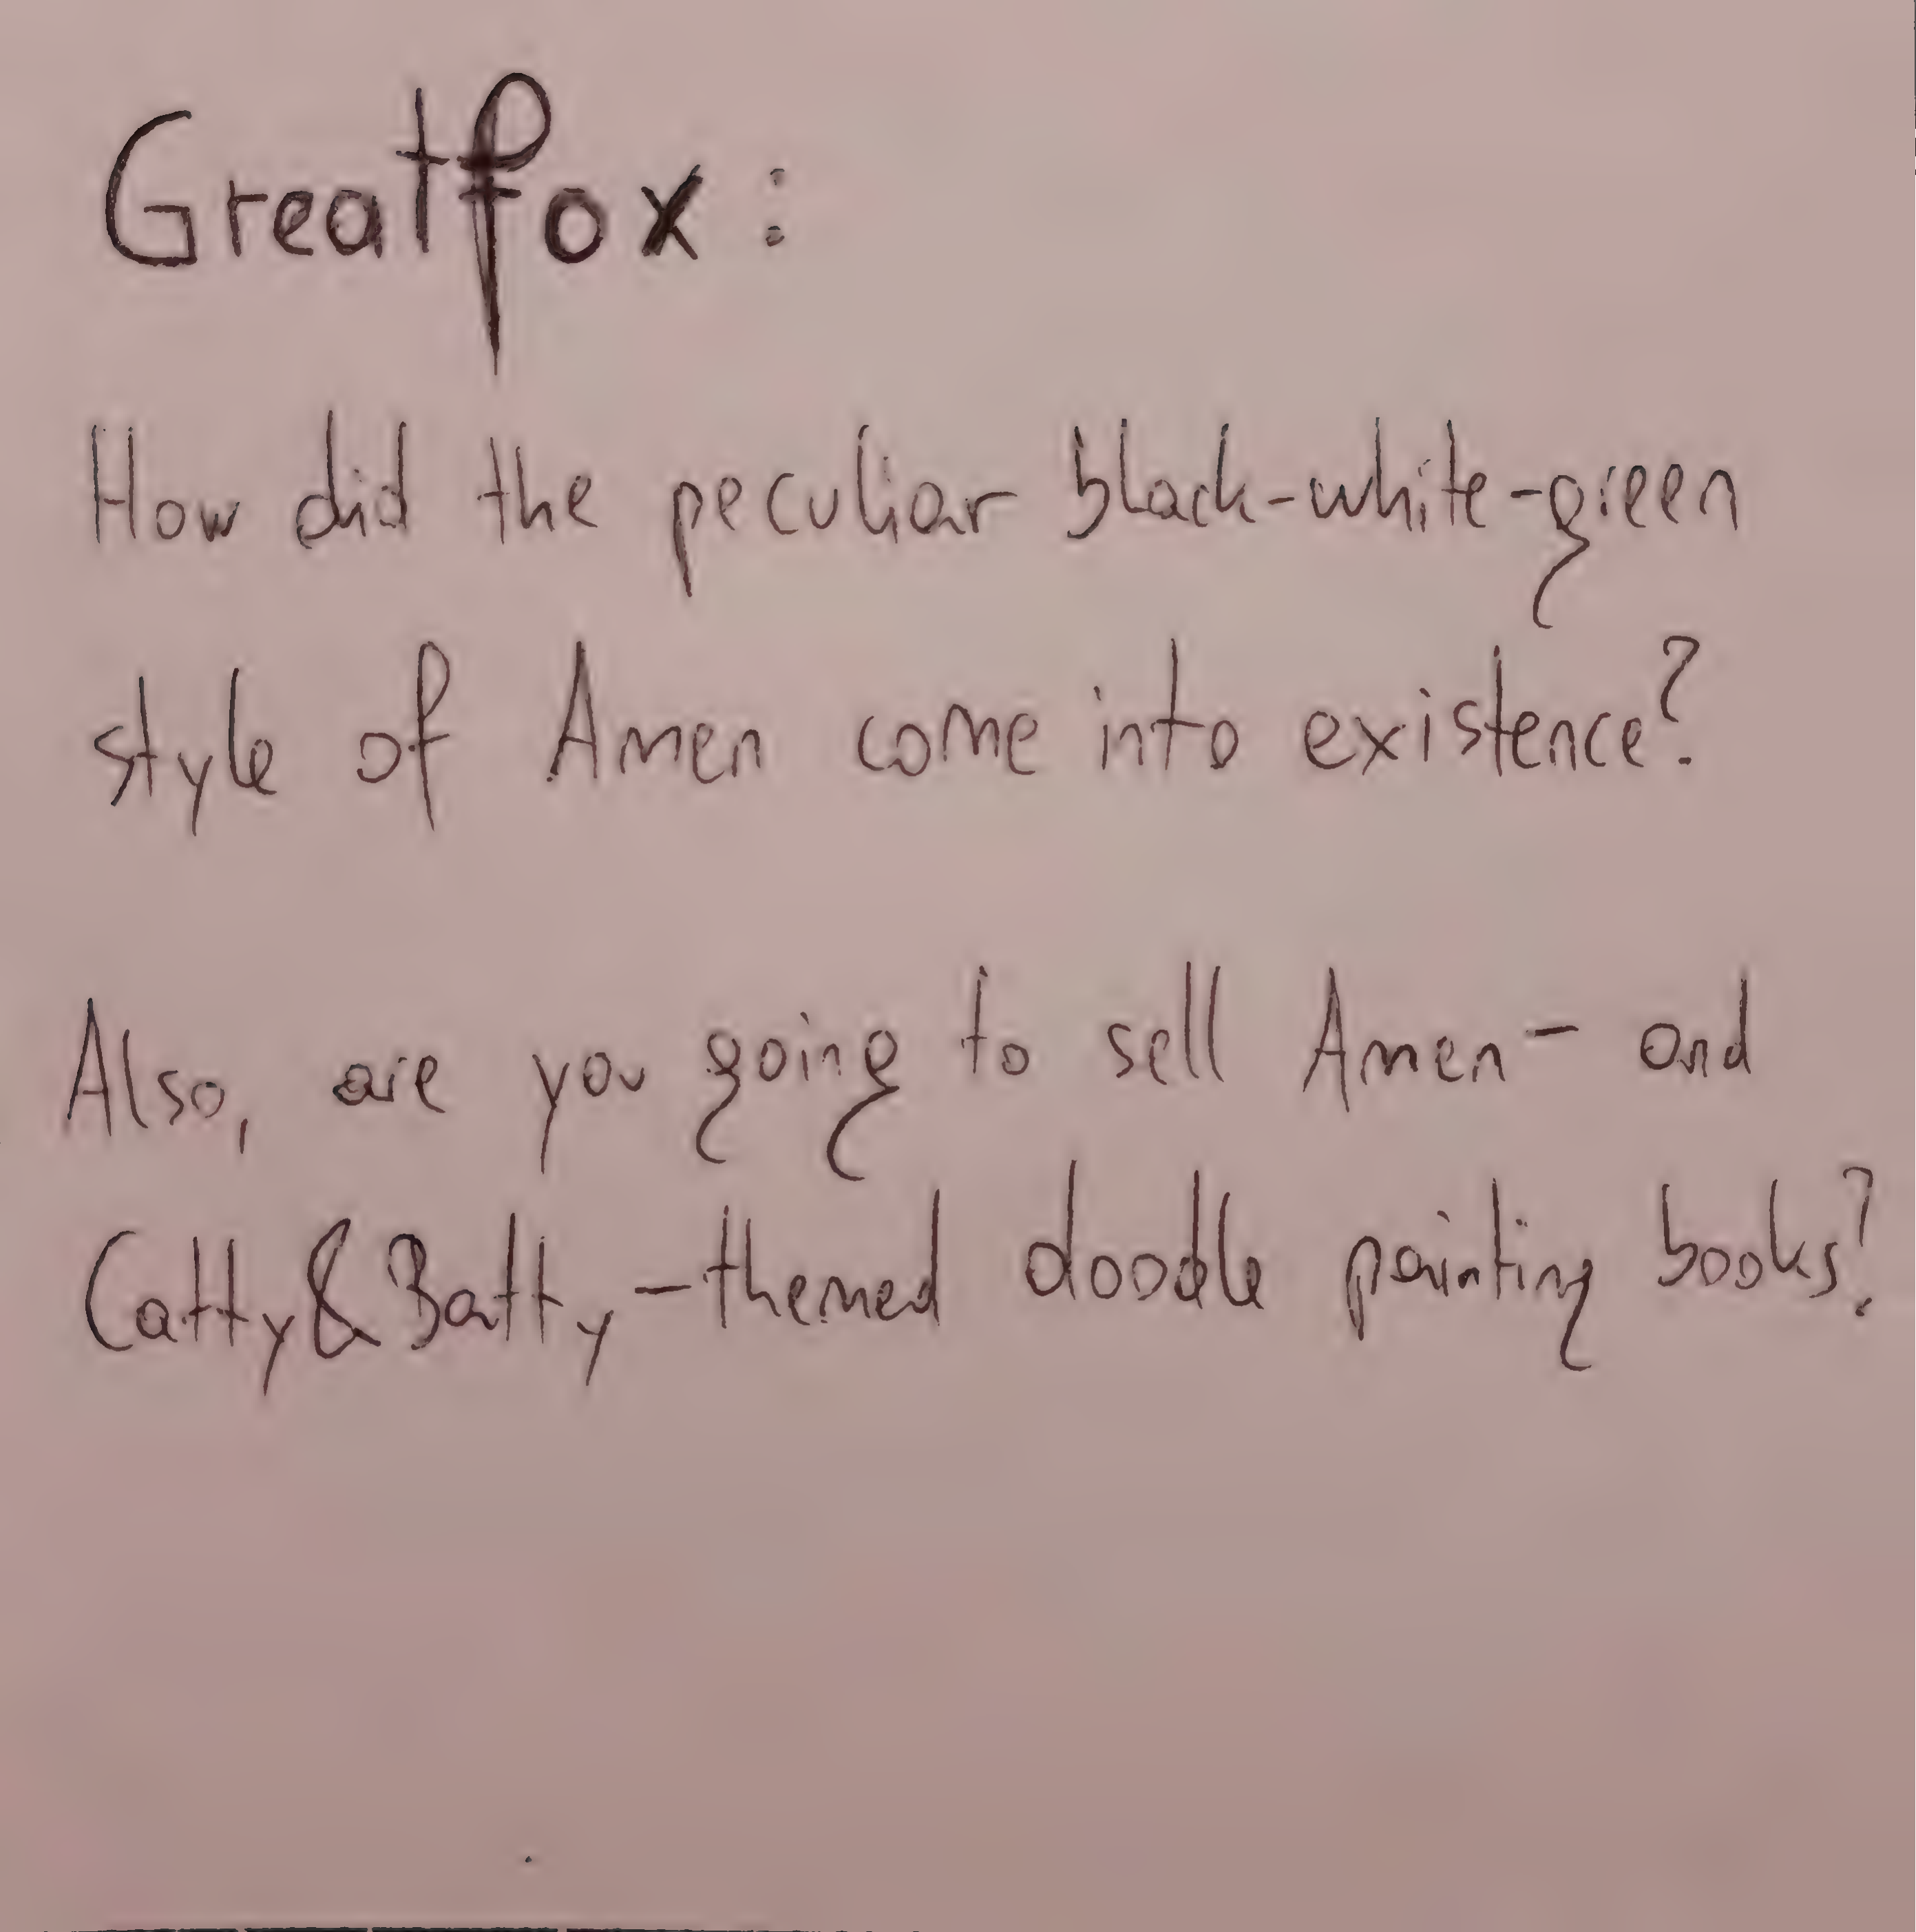 Greatfox:
How did the peculiar black-white-green
style of Amen come into existence?
Also, are you going to sell Amen- and
Catty&Batty-themed doodle painting books?